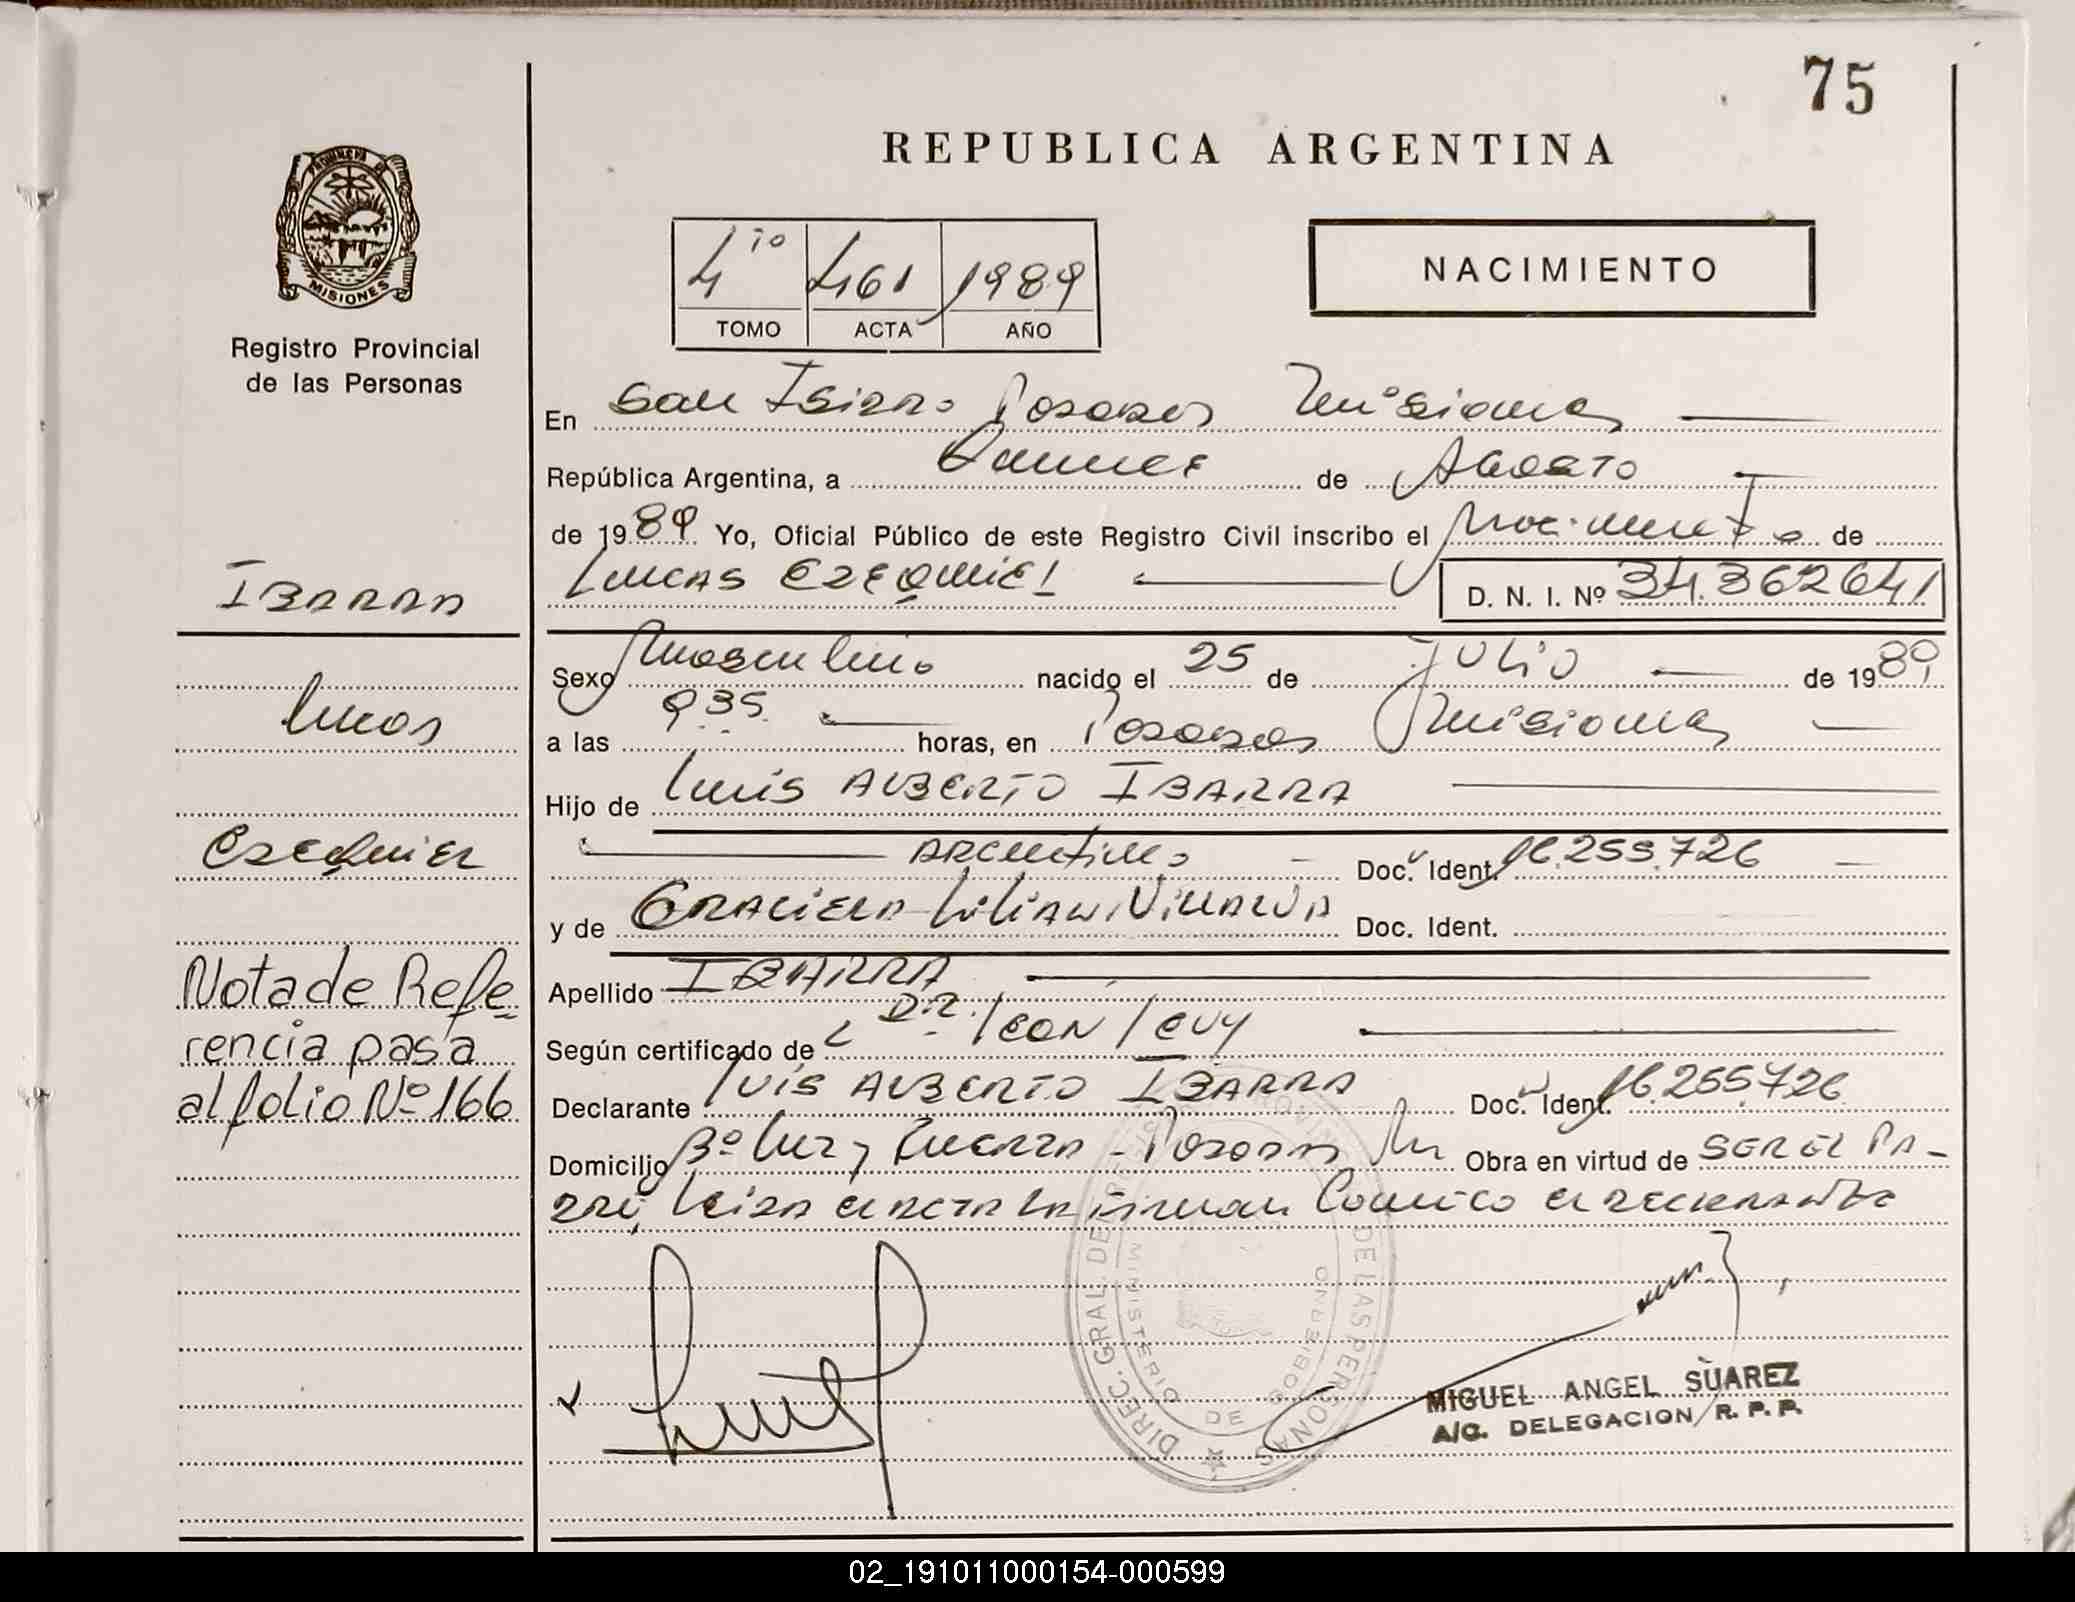 75
REPUBLICA ARGENTINA
PROVINCIA DE
MISIONES
Registro Provincial
de las Personas
4to 461 1989
TOMO ACTA AÑO
NACIMIENTO
En San Isidro Posadas Misiones
República Argentina, a Quince de Agosto
de 1989 Yo, Oficial Público de este Registro Civil inscribo el Nacimiento de
Lucas Ezequiel D. N. I. Nº 34.362641
Ibarra
Lucas
Ezequiel
Nota de Refe-
rencia pasa
al folio Nº 166
Sexo Masculino nacido el 25 de Julio de 1989
a las 9.35. horas, en Posadas Misiones
Hijo de Luis Alberto Ibarra
Argentino Doc. Ident. 16.255.726
y de Graciela Lilian Villalva Doc. Ident.
Apellido IBARRA
Según certificado de Dr. Leon Levy
Declarante Luis Alberto Ibarra Doc. Ident. 16.255.726
Domicilio Bº Luz y Fuerza - Posadas Obra en virtud de SER EL PA-
DRE, Leida el acta la firman Conmigo el declarante
DIREC. GRAL. DE DE LAS PERSONAS
MINISTERIO DE GOBIERNO
MIGUEL ANGEL SUAREZ
A/C. DELEGACION R. P. P.
02_191011000154-000599